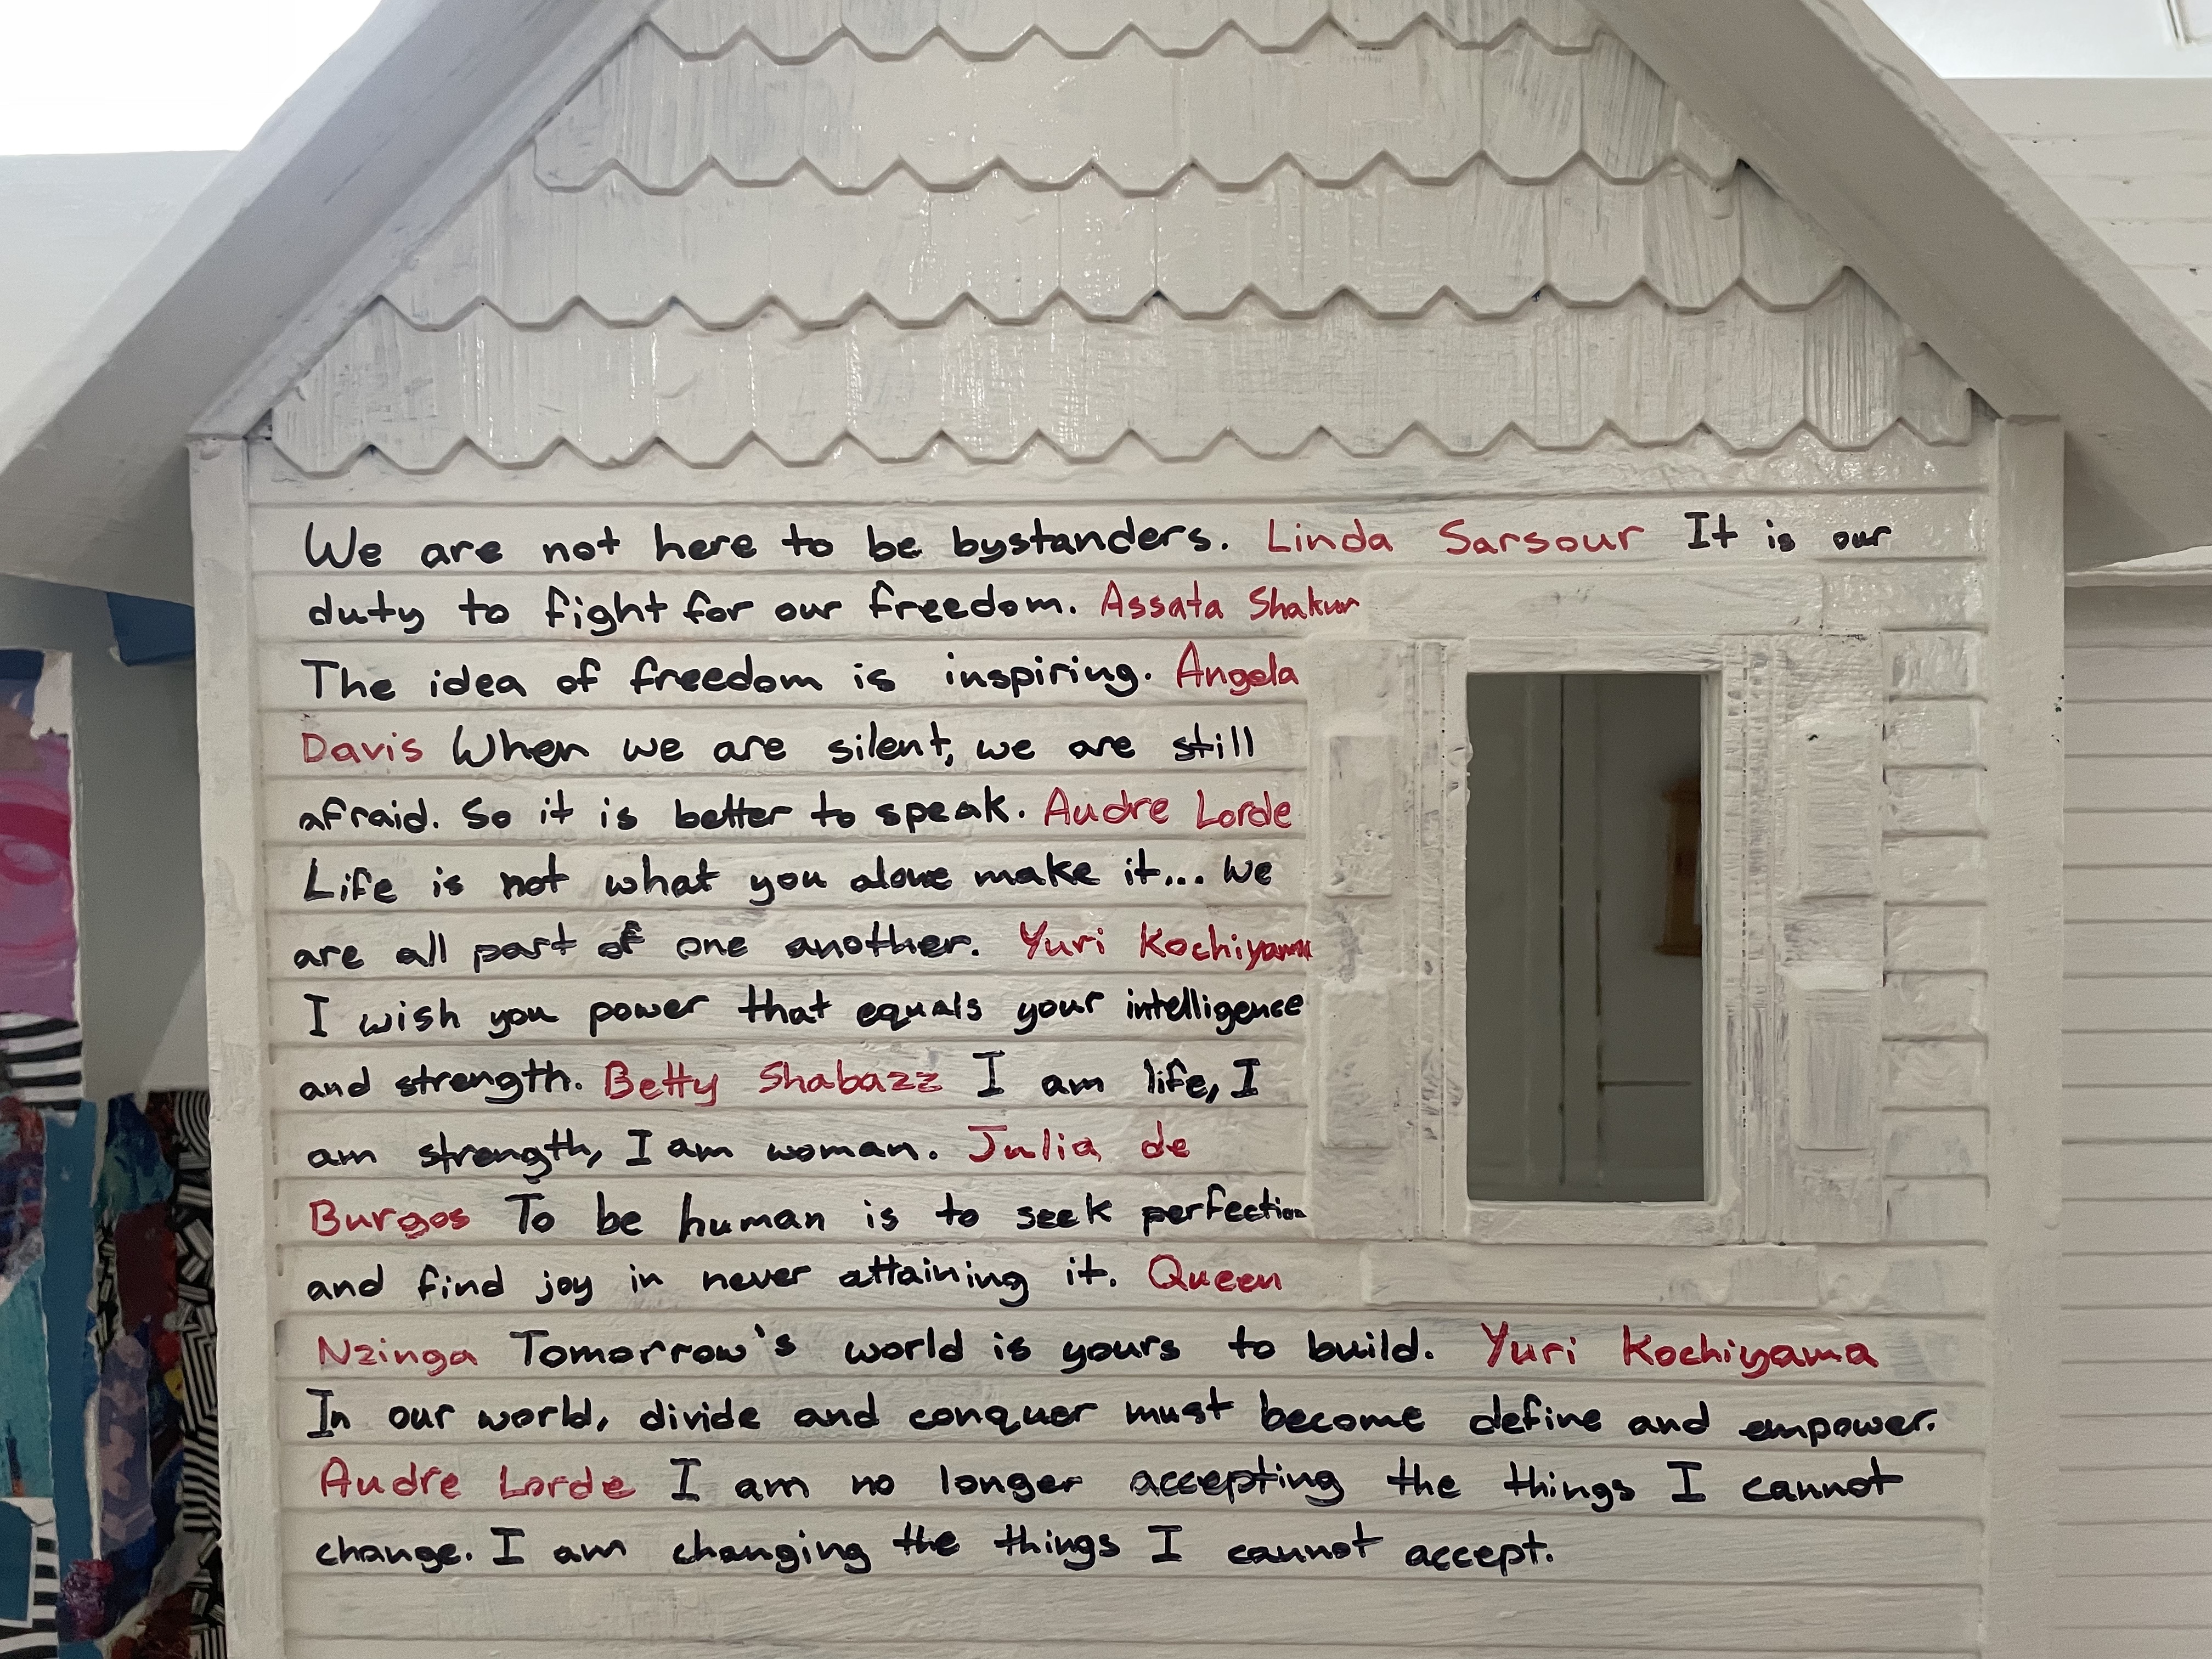 We are not here to be bystanders. Linda Sarsour It is our
duty to fight for our freedom. Assata Shakur
The idea of freedom is inspiring. Angela
Davis When we are silent, we are still
afraid. So it is better to speak. Audre Lorde
Life is not what you alone make it... We
are all part of one another. Yuri Kochiyama
I wish you power that equals your intelligence
and strength. Betty Shabazz I am life, I
am strength, I am woman. Julia de
Burgos To be human is to seek perfection
and find joy in never attaining it. Queen
Nzinga Tomorrow's world is yours to build. Yuri Kochiyama
In our world, divide and conquer must become define and empower.
Audre Lorde I am no longer accepting the things I cannot
change. I am changing the things I cannot accept.